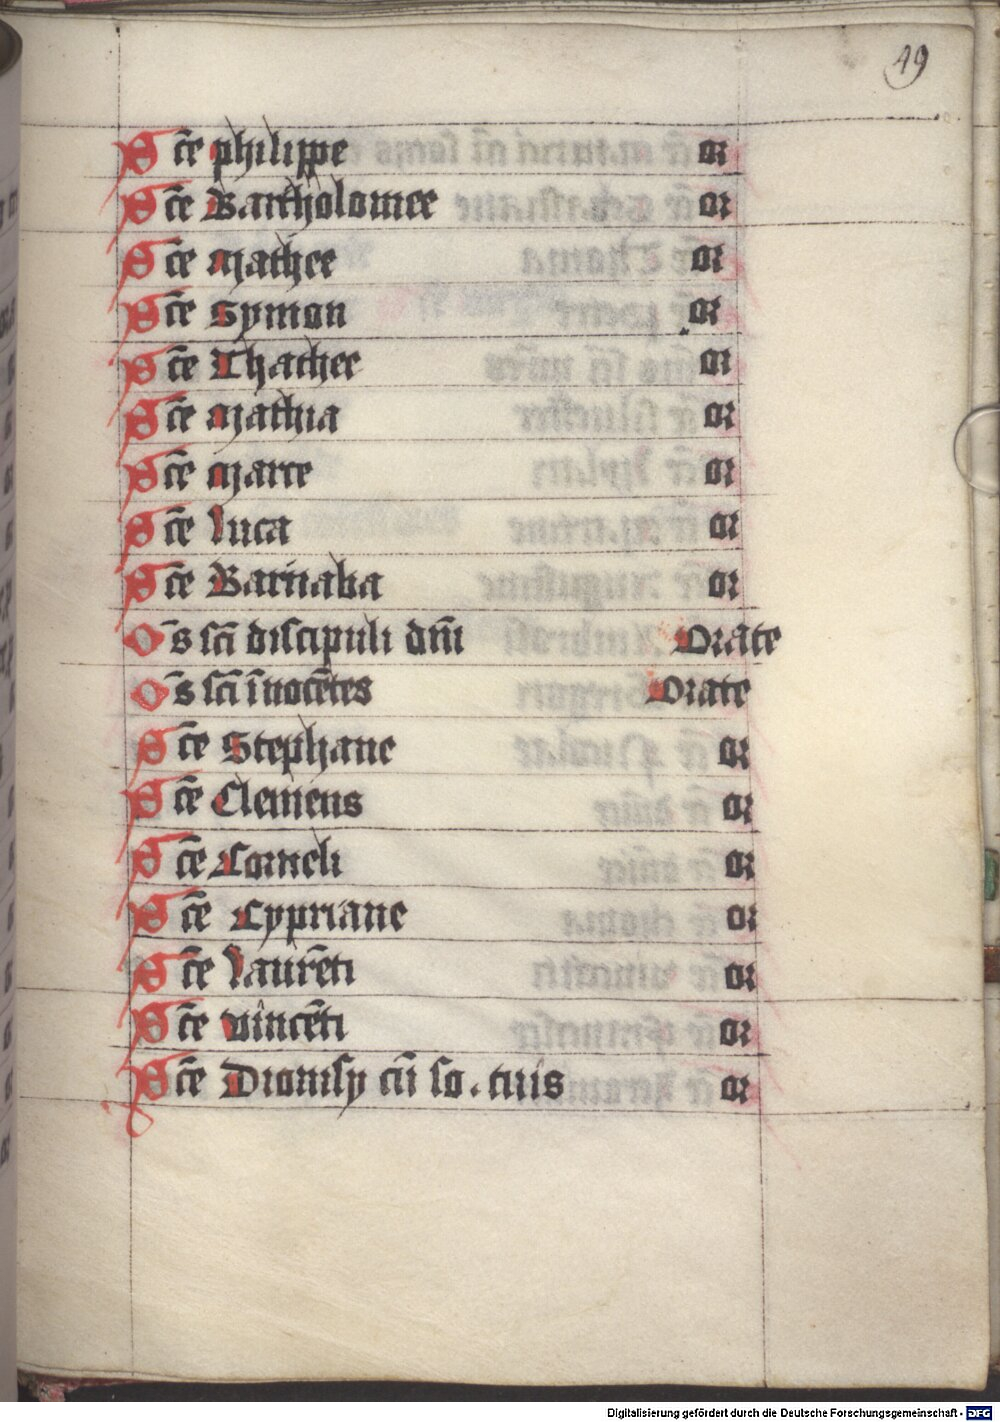 49
Sc̄e philippe or
Sc̄e Bartholomee or
Sc̄e Mathee or
Sc̄e Symon or
Sc̄e Thathee or
Sc̄e Mathia or
Sc̄e Marce or
Sc̄e luca or
Sc̄e Barnaba or
Om̄s sc̄i discipuli dn̄i Orate
Om̄s sc̄i īnocētes Orate
Sc̄e Stephane or
Sc̄e Clemens or
Sc̄e Corneli or
Sc̄e Cypriane or
Sc̄e laurēti or
Sc̄e vincēti or
Sc̄e Dionisy cū so. tuis or
Digitalisierung gefördert durch die Deutsche Forschungsgemeinschaft - DFG